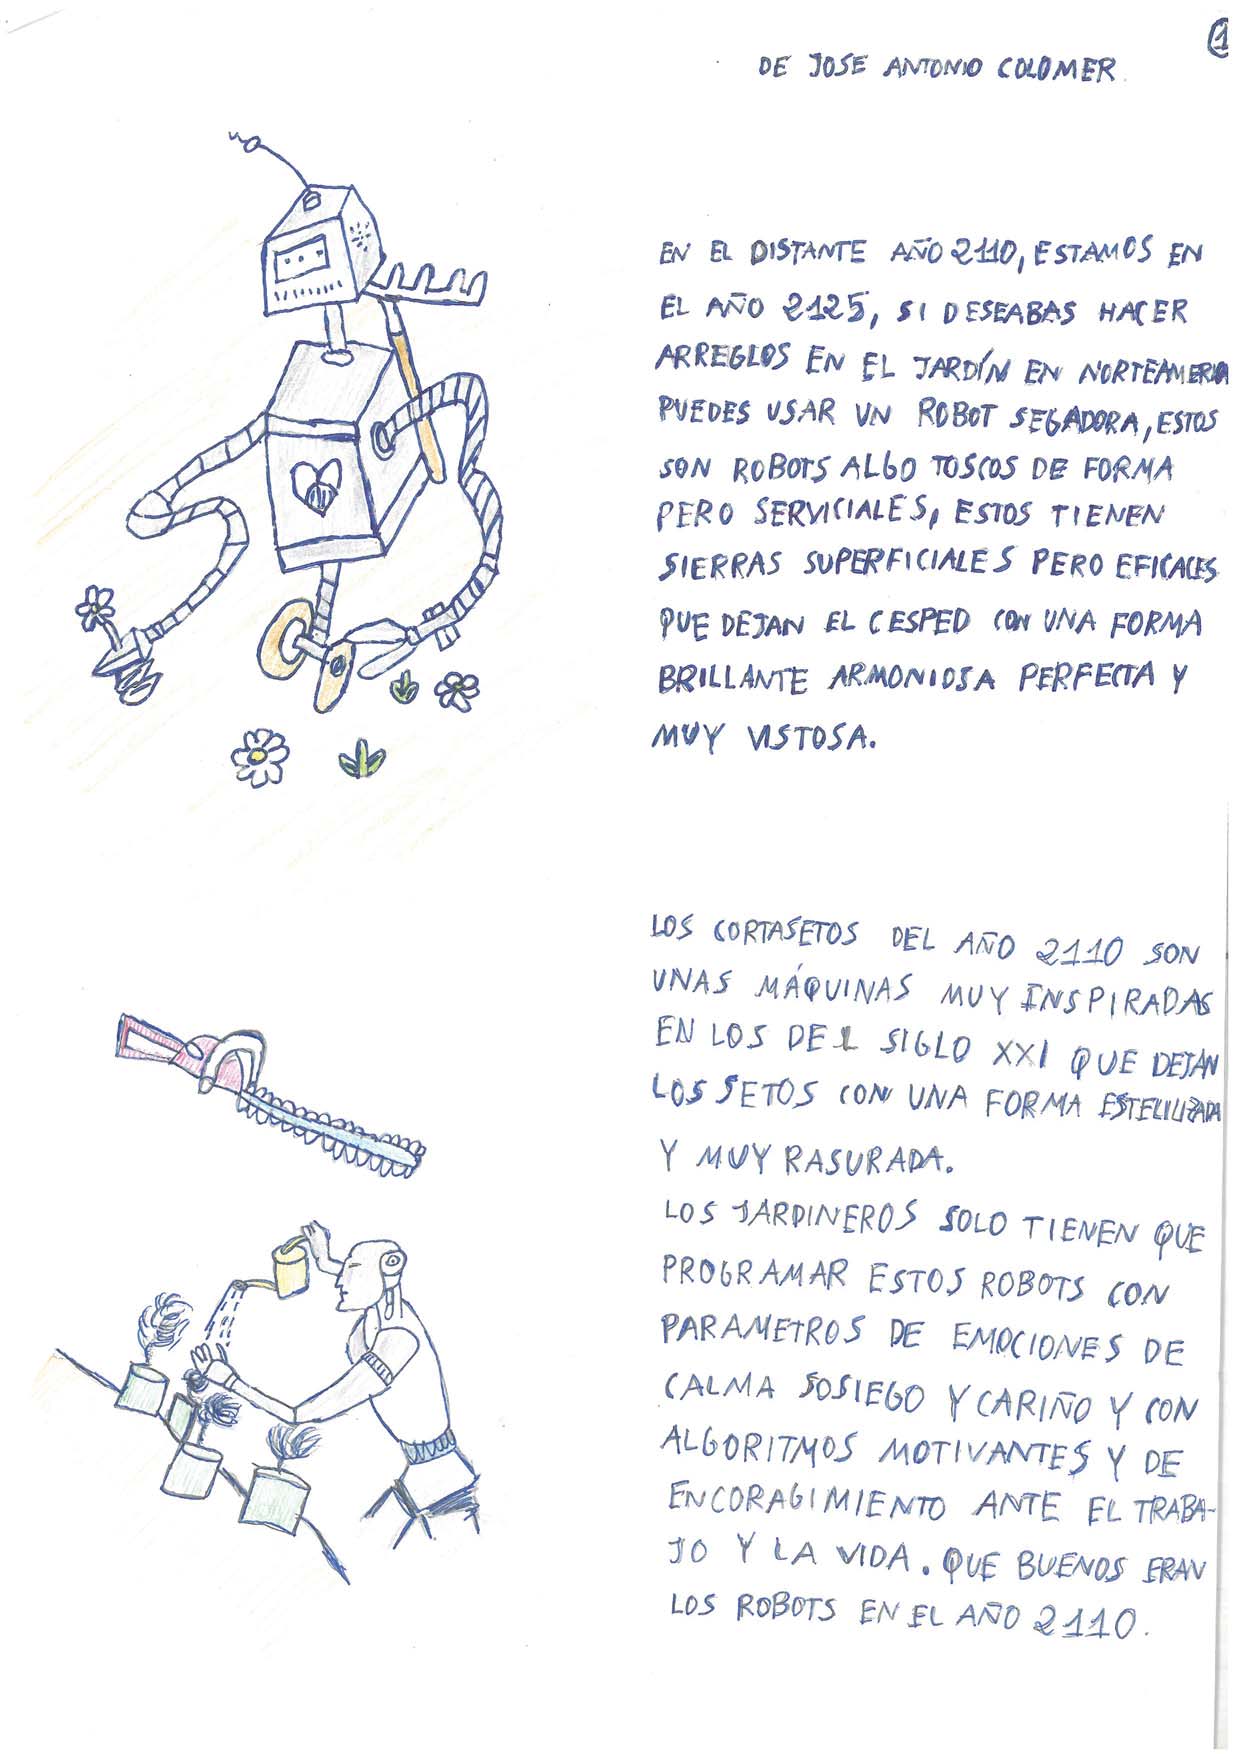 1
DE JOSE ANTONIO COLOMER
EN EL DISTANTE AÑO 2110, ESTAMOS EN
EL AÑO 2125, SI DESEABAS HACER
ARREGLOS EN EL JARDÍN EN NORTEAMERICA
PUEDES USAR UN ROBOT SEGADORA, ESTOS
SON ROBOTS ALGO TOSCOS DE FORMA
PERO SERVICIALES, ESTOS TIENEN
SIERRAS SUPERFICIALES PERO EFICACES
QUE DEJAN EL CESPED CON UNA FORMA
BRILLANTE ARMONIOSA PERFECTA Y
MUY VISTOSA.
LOS CORTASETOS DEL AÑO 2110 SON
UNAS MÁQUINAS MUY INSPIRADAS
EN LOS DEL SIGLO XXI QUE DEJAN
LOS SETOS CON UNA FORMA ESTELILIZADA
Y MUY RASURADA.
LOS JARDINEROS SOLO TIENEN QUE
PROGRAMAR ESTOS ROBOTS CON
PARAMETROS DE EMOCIONES DE
CALMA SOSIEGO Y CARIÑO Y CON
ALGORITMOS MOTIVANTES Y DE
ENCORAGIMIENTO ANTE EL TRABA-
JO Y LA VIDA. QUE BUENOS ERAN
LOS ROBOTS EN EL AÑO 2110.